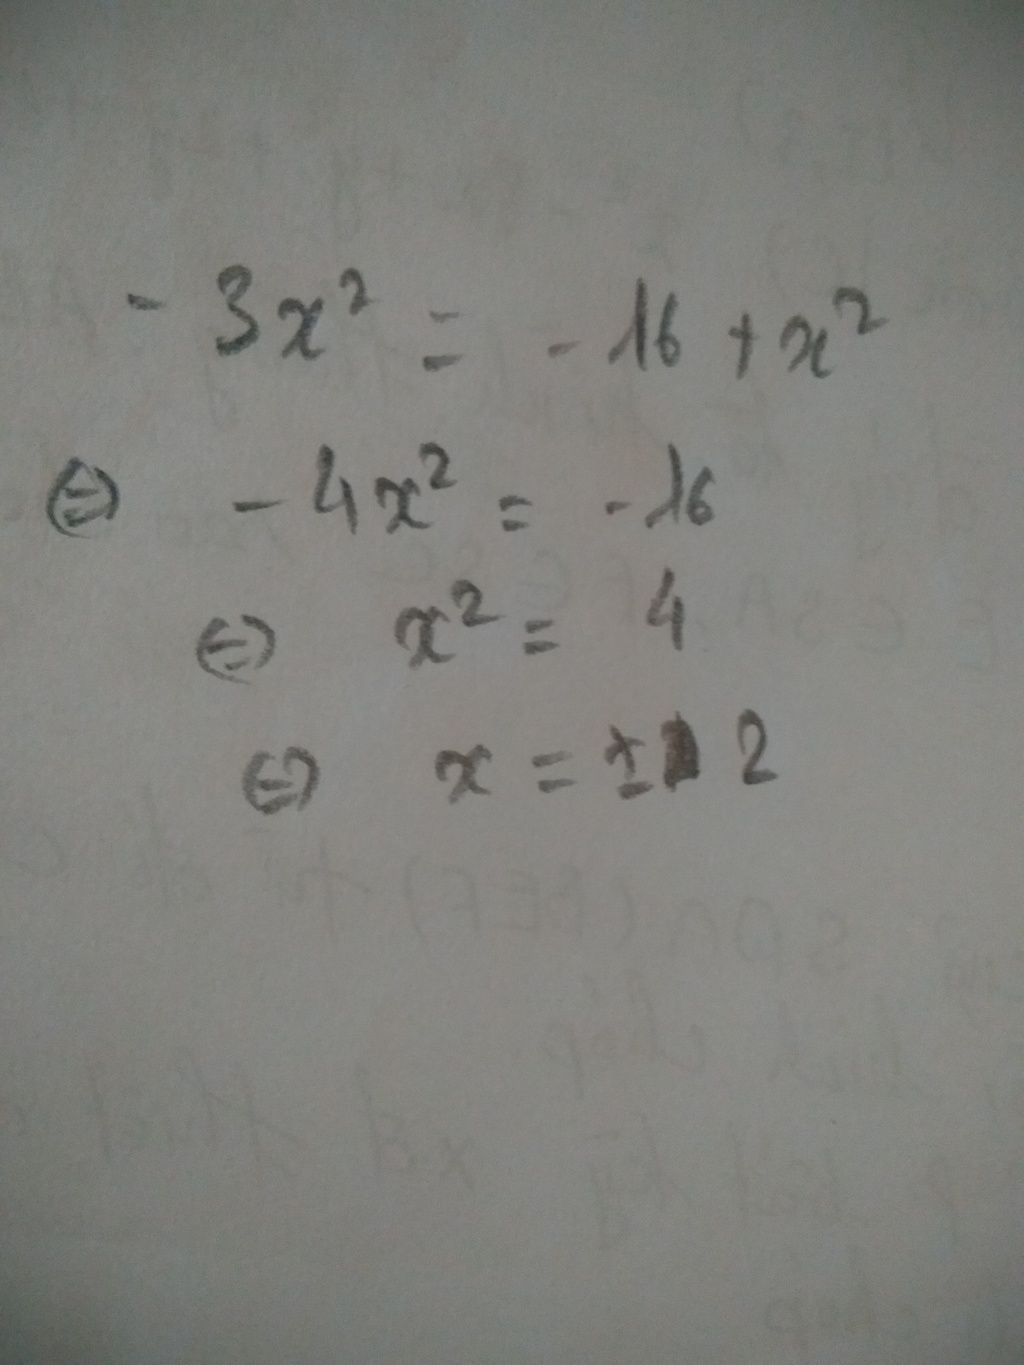 - 3x² = - 16 + x²
⇔ - 4x² = - 16
⇔ x² = 4
⇔ x = ± 2